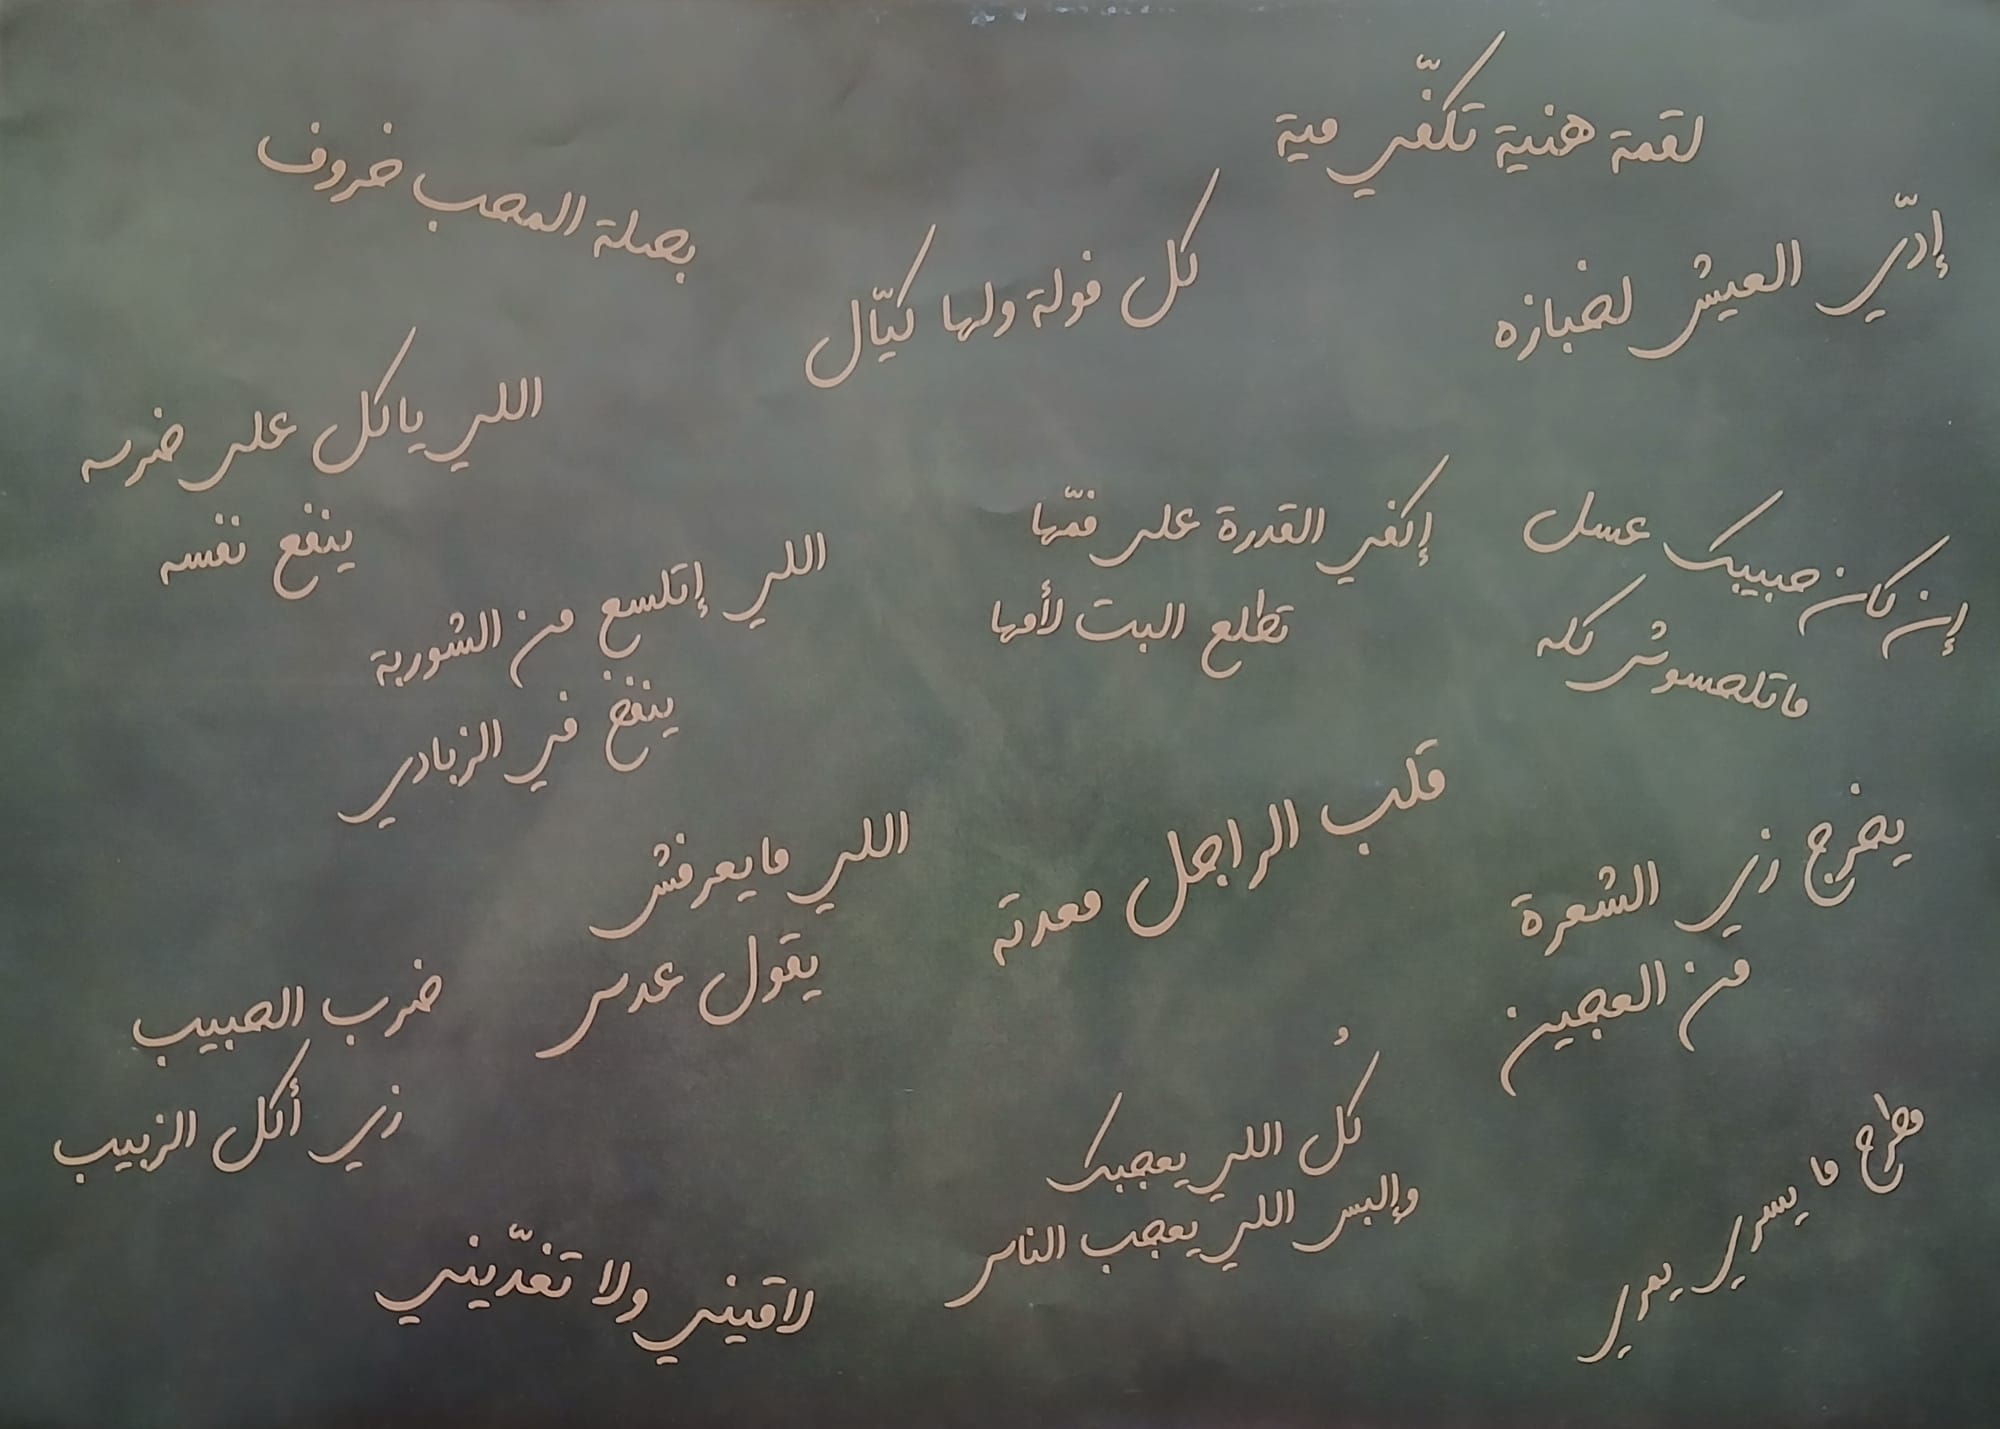 لقمة هنية تكفّي مية
بصلة المحب خروف
كل فولة ولها كيّال
إدّي العيش لخبازه
اللي ياكل على ضرسه
ينفع نفسه
إكفي القدرة على فمّها
تطلع البت لأمها
إن كان حبيبك عسل
ماتلحسوش كله
اللي إتلسع من الشوربة
ينفخ في الزبادي
قلب الراجل معدته
يخرج زي الشعرة
من العجين
اللي مايعرفش
يقول عدس
ضرب الحبيب
زي أكل الزبيب
كُل اللي يعجبك
وإلبس اللي يعجب الناس
مطرح ما يسري يمري
لاقيني ولا تغدّيني